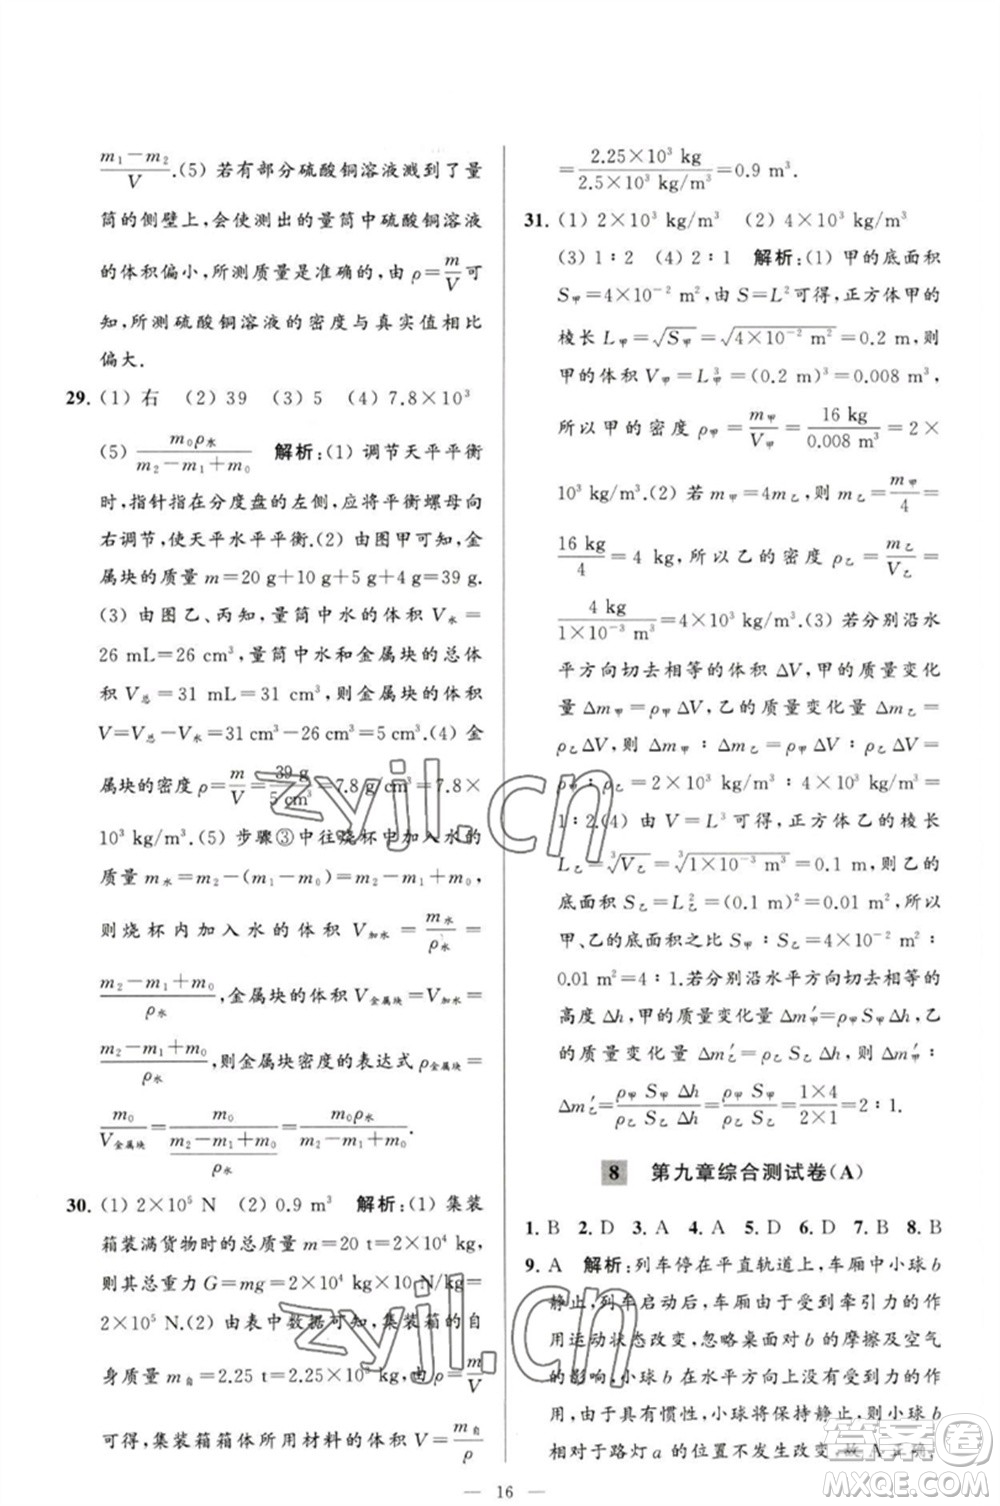 m₁－m₂/V.(5) 若有部分硫酸铜溶液溅到了量
筒的侧壁上,会使测出的量筒中硫酸铜溶液
的体积偏小,所测质量是准确的,由 ρ＝m/V 可
知,所测硫酸铜溶液的密度与真实值相比
偏大.
29. (1) 右　(2) 39　(3) 5　(4) 7.8×10³
(5) m₀ρ水/(m₂－m₁＋m₀)　解析:(1) 调节天平平衡
时,指针指在分度盘的左侧,应将平衡螺母向
右调节,使天平水平平衡.(2) 由图甲可知,金
属块的质量 m＝20 g＋10 g＋5 g＋4 g＝39 g.
(3) 由图乙、丙知,量筒中水的体积 V水＝
26 mL＝26 cm³,量筒中水和金属块的总体
积 V总＝31 mL＝31 cm³,则金属块的体积
V＝V总－V水＝31 cm³－26 cm³＝5 cm³.(4) 金
属块的密度 ρ＝m/V＝39 g/5 cm³＝7.8 g/cm³＝7.8×
10³ kg/m³.(5) 步骤③中往烧杯中加入水的
质量 m水＝m₂－(m₁－m₀)＝m₂－m₁＋m₀,
则烧杯内加入水的体积 V加水＝m水/ρ水＝
(m₂－m₁＋m₀)/ρ水,金属块的体积 V金属块＝V加水＝
(m₂－m₁＋m₀)/ρ水,则金属块密度的表达式 ρ金属块＝
m₀/V金属块＝m₀/((m₂－m₁＋m₀)/ρ水)＝m₀ρ水/(m₂－m₁＋m₀).
30. (1) 2×10⁵ N　(2) 0.9 m³　解析:(1) 集装
箱装满货物时的总质量 m＝20 t＝2×10⁴ kg,
则其总重力 G＝mg＝2×10⁴ kg×10 N/kg＝
2×10⁵ N.(2) 由表中数据可知,集装箱的自
身质量 m自＝2.25 t＝2.25×10³ kg,由 ρ＝m/V
可得,集装箱箱体所用材料的体积 V＝m自/ρ
＝2.25×10³ kg/2.5×10³ kg/m³＝0.9 m³.
31. (1) 2×10³ kg/m³　(2) 4×10³ kg/m³
(3) 1∶2　(4) 2∶1　解析:(1) 甲的底面积
S甲＝4×10⁻² m²,由 S＝L²可得,正方体甲的
棱长 L甲＝√S甲＝√4×10⁻² m²＝0.2 m,所以
甲的体积 V甲＝L甲³＝(0.2 m)³＝0.008 m³,
所以甲的密度 ρ甲＝m甲/V甲＝16 kg/0.008 m³＝2×
10³ kg/m³.(2) 若 m甲＝4m乙,则 m乙＝m甲/4＝
16 kg/4＝4 kg,所以乙的密度 ρ乙＝m乙/V乙＝
4 kg/1×10⁻³ m³＝4×10³ kg/m³.(3) 若分别沿水
平方向切去相等的体积 ΔV,甲的质量变化
量 Δm甲＝ρ甲ΔV,乙的质量变化量 Δm乙＝
ρ乙ΔV,则 Δm甲∶Δm乙＝ρ甲ΔV∶ρ乙ΔV＝
ρ甲∶ρ乙＝2×10³ kg/m³∶4×10³ kg/m³＝
1∶2.(4) 由 V＝L³可得,正方体乙的棱长
L乙＝³√V乙＝³√1×10⁻³ m³＝0.1 m,则乙的
底面积 S乙＝L乙²＝(0.1 m)²＝0.01 m²,所以
甲、乙的底面积之比 S甲∶S乙＝4×10⁻² m²∶
0.01 m²＝4∶1.若分别沿水平方向切去相等的
高度 Δh,甲的质量变化量 Δm甲′＝ρ甲S甲Δh,乙
的质量变化量 Δm乙′＝ρ乙S乙Δh,则 Δm甲′∶
Δm乙′＝ρ甲S甲Δh/ρ乙S乙Δh＝ρ甲S甲/ρ乙S乙＝1×4/2×1＝2∶1.
8　第九章综合测试卷(A)
1. B　2. D　3. A　4. A　5. D　6. D　7. B　8. B
9. A　解析:列车停在平直轨道上,车厢中小球 b
静止,列车启动后,车厢由于受到牵引力的作
用运动状态改变,忽略桌面对 b 的摩擦及空气
的影响,小球 b 在水平方向上不受力的作用,
由于具有惯性,小球将保持静止,则小球 b
相对于路灯 a 的位置不发生改变,故 A 正确.
16
zyjl.cn
zyjl.cn
答案圈
MXQE.COM